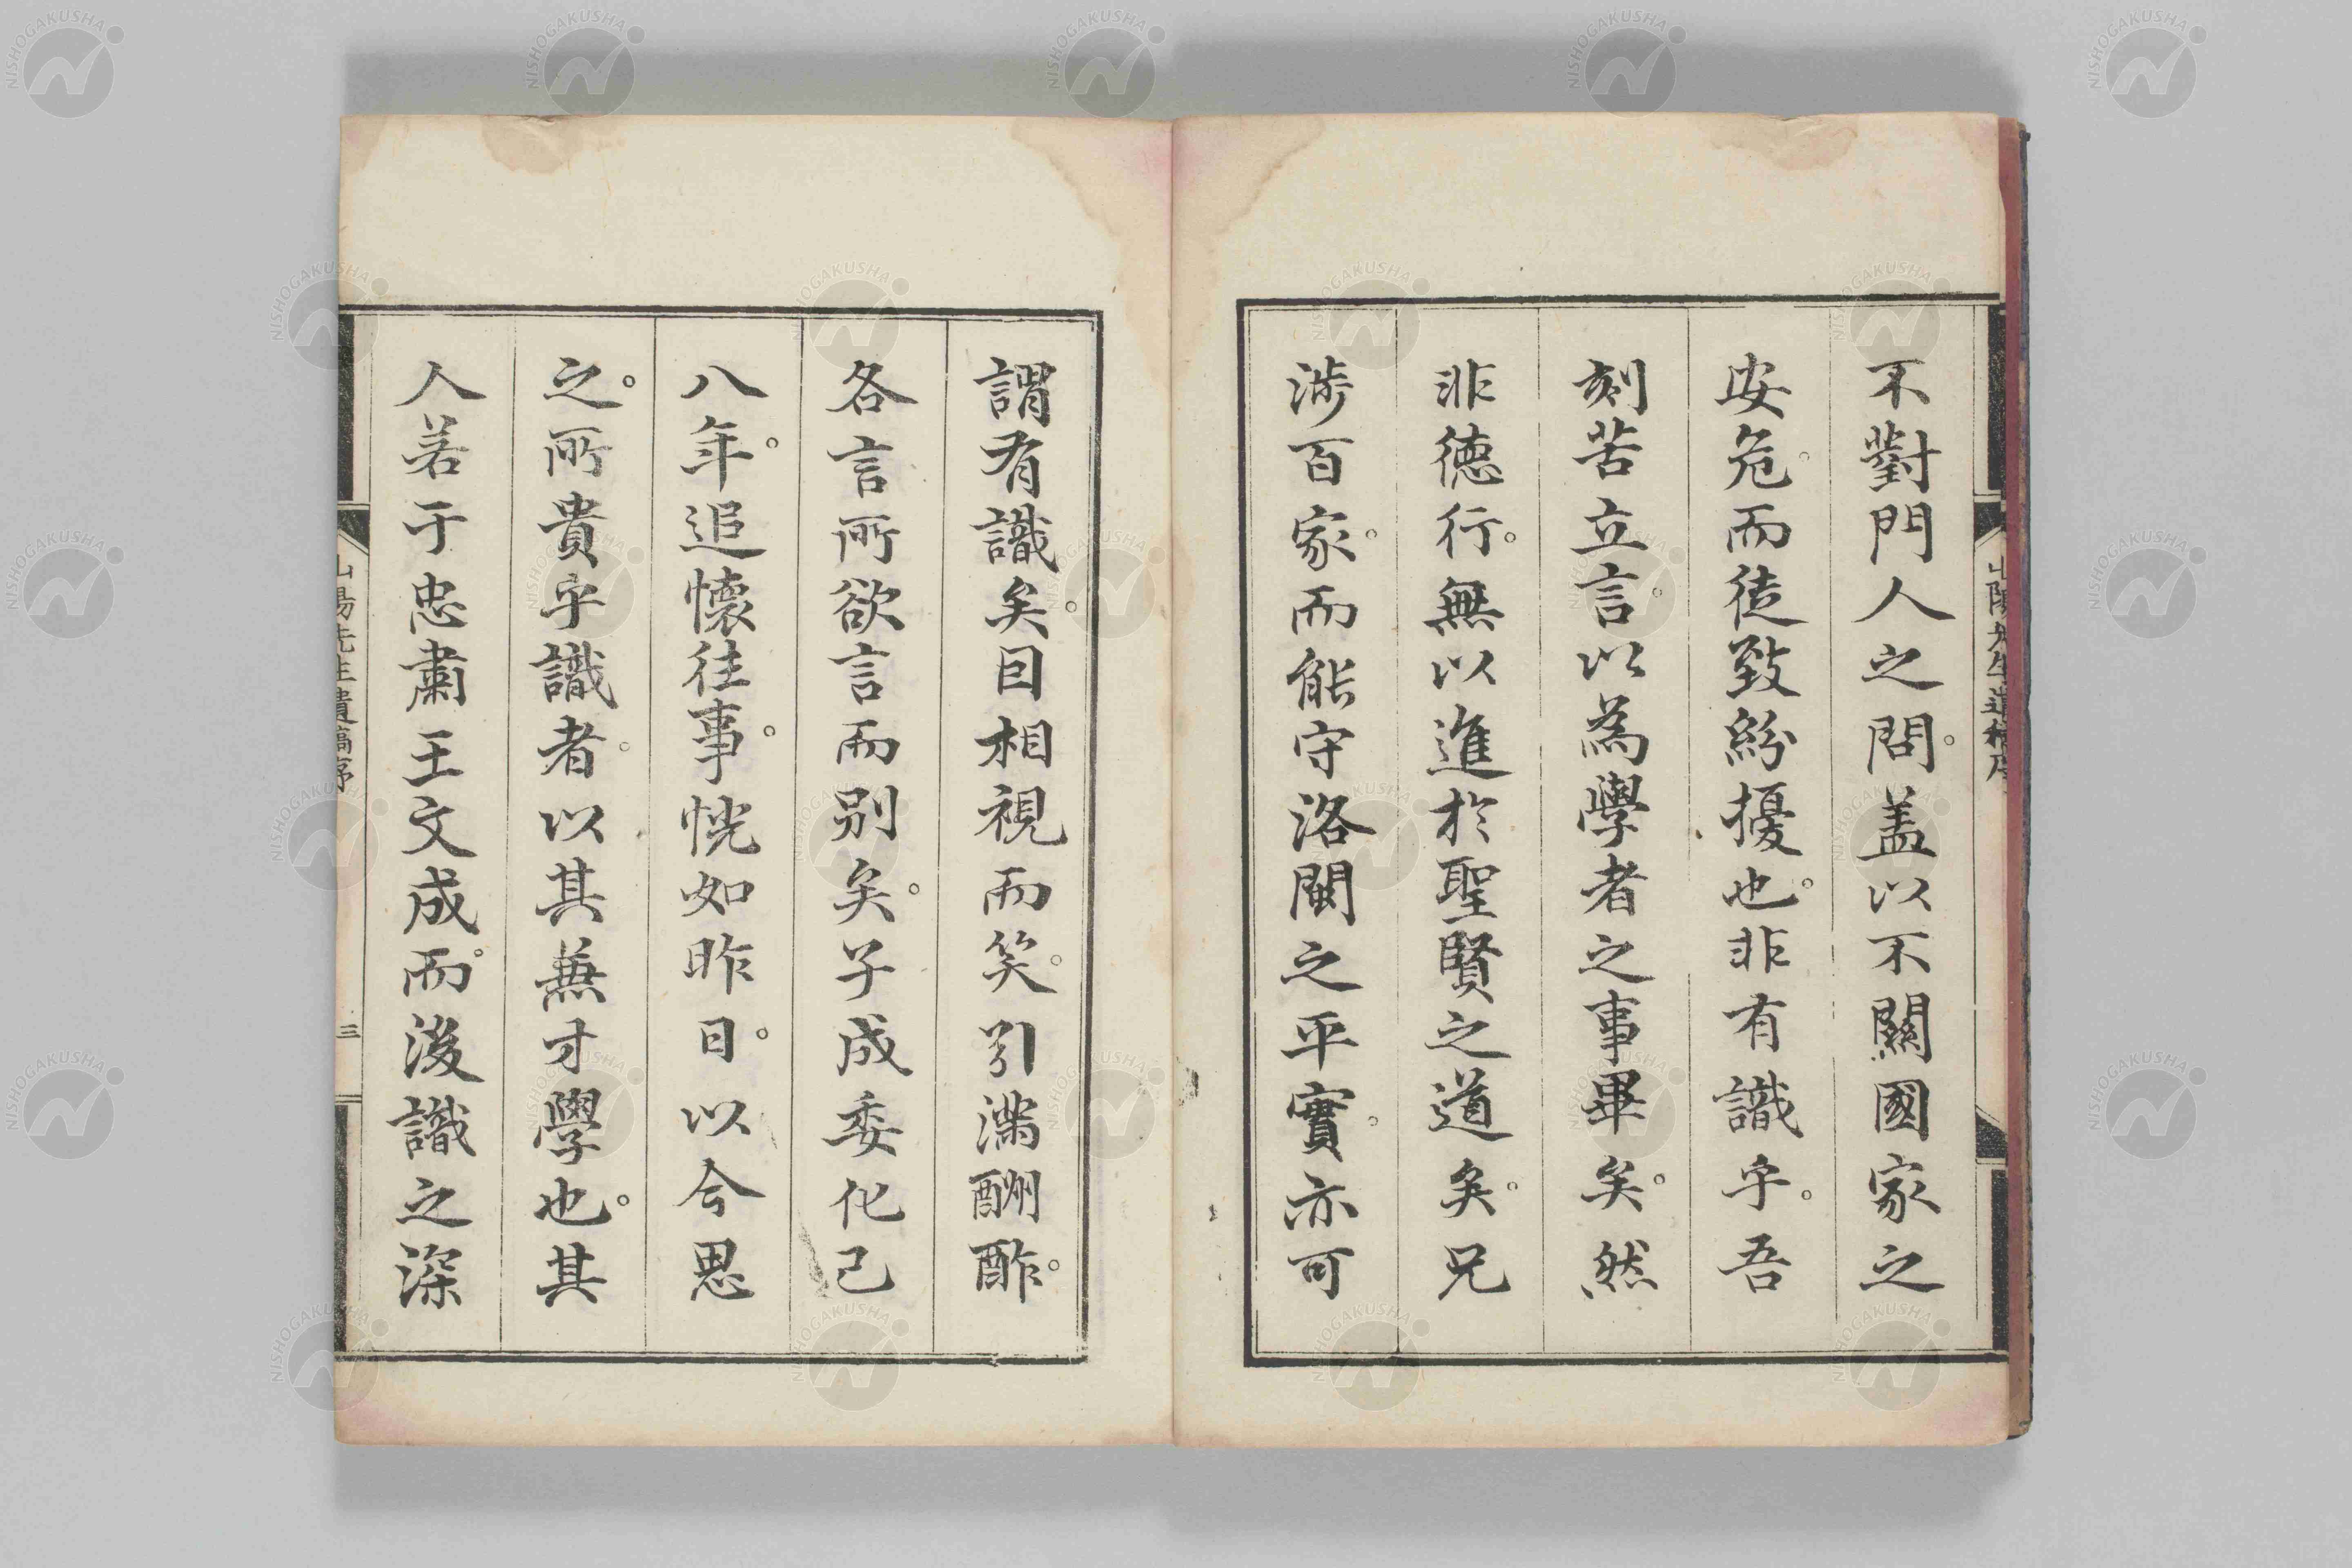 不對門人之問。盖以不關國家之
安危。而徒致紛擾也。非有識乎。吾
刻苦立言。以為學者之事畢矣。然
非德行。無以進於聖賢之道矣。兄
渉百家。而能守洛閩之平實。亦可
山陽先生遺稿序
謂有識矣。因相視而笑。引滿酬酢。
各言所欲言而別矣。子成委化已
八年。追懷往事。恍如昨日。以今思
之。所貴乎識者。以其兼才學也。其
人若于忠肅王文成。而後識之深
山陽先生遺稿序
三
NISHOGAKUSHA